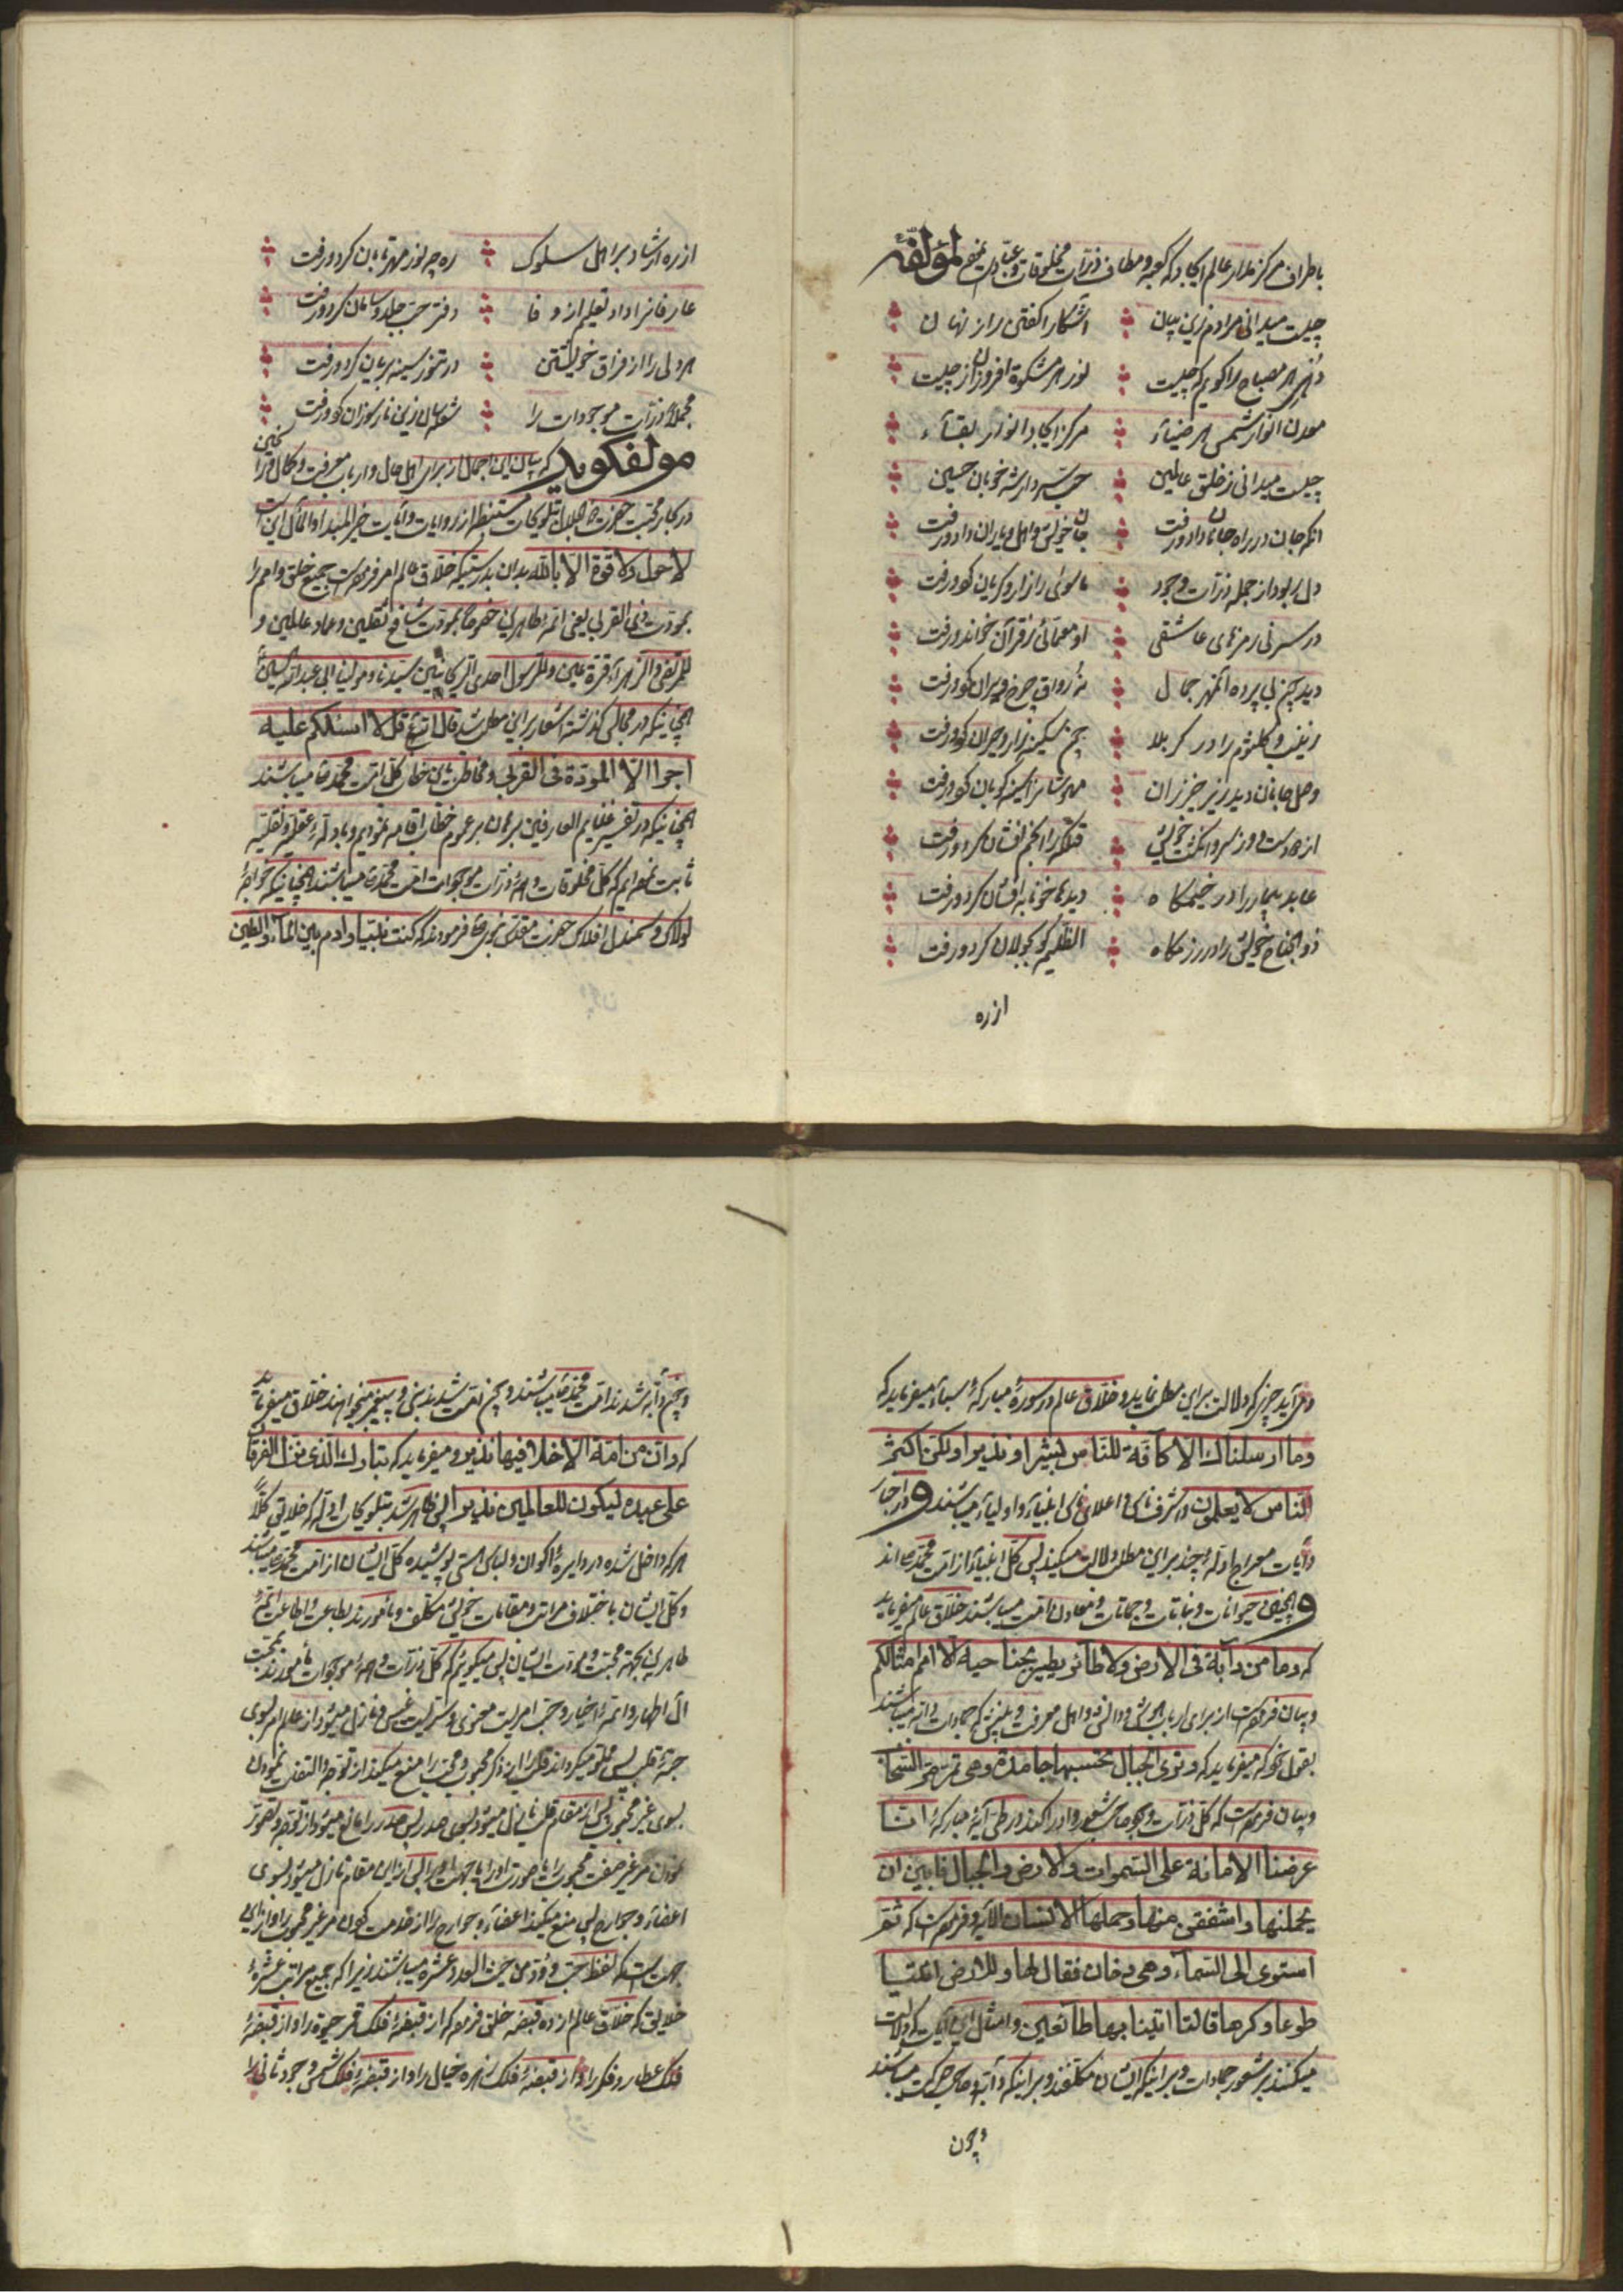 باطراف مرکز مدار عالم ایجاد که کعبه و مطاف ذرات مخلوقات و لمؤلفه
چیست میدانی مرادم زین بیان آشکارا گفتن راز نهان
هر مصباح را گویم که چیست نور هر مشکوة افروزان از چیست
معدن انوار شمس هر ضیاء مرکز ایجاد انور بقاء
چیست میدانی ز خلق عالمین حب سردار شه خوبان حسین
آنکه جان در راه جانان داد و رفت جان خویش و اهل و یاران داد و رفت
دل ربود از جمله ذرات وجود ماسوی را زار و گریان کرد و رفت
در سر نی رمزهای عاشقی او معمائی ز قرآن خواند و رفت
دید چون بی پرده آنمهر جمال نه رواق چرخ ویران کرد و رفت
زینب و کلثوم را در کربلا چون سکینه زار و حیران کرد و رفت
وصل جانان دید زیر خیزران
از دو دست و از سر و انگشت خویش
عابد بیمار را در خیمگاه دیدها خونابه افشان کرد و رفت
ذو الجناح خویش را در رزمگاه الظلیمه گو بجولان کرد و رفت
از ره
از ره ارشاد بر اهل سلوک ره چو نور مهر تابان کرد و رفت
عارفانرا داد تعلیم از وفا دفتر حب جلد و سامان کرد و رفت
هر دلی را از فراق خویشتن در تنور سینه بریان کرد و رفت
مجملا ذرات موجودات را شعله سان زین نار سوزان کرد و رفت
مولف گوید که بیان این اجمال از برای اهل حال و ارباب معرفت و کمال
در کتاب محبت حضرت مستنبط از روایات و آیات
لا حول ولا قوة الا بالله بدان بدرستیکه خلاق عالم امر فرموده است جمیع خلق و امم را
بمودت ذی القربی یعنی ائمه طاهرین خصوصا بمودت شافع ثقلین و عماد عالمین و
المرتضی و الزهراء قرة عین و للرسول سیدنا و مولینا ابی عبد الله الحسین
همچنانیکه در مجالس گذشته اشعار براین مطلب شد قال الله تع قل لا اسئلکم علیه
اجرا الا المودة فی القربی و مخاطب باین خطاب کل امت محمد میباشند
همچنانیکه در تفسیر غنایم العارفین برهان بر عموم خطاب اقامه نمودیم و بادله عقلیه و نقلیه
ثابت نموده ایم که کل مخلوقات و همه ذرات موجودات امت محمد میباشند همچنانیکه خواجه
لولاک و سمند افلاک حضرت مقدس نبوی فرمودند که کنت نبیا و آدم بین الماء و الطین
چون
و می آید چیزی که دلالت براین مطلب نماید و خلاق عالم در سوره مبارکه سباء میفرماید که
وما ارسلناک الا کافة للناس بشیرا و نذیرا ولکن اکثر
الناس لا یعلمون و اشرف ناس و اعلای ناس انبیاء و اولیاء میباشند و در اخبار
و آیات معراج ادله چند براین مطلب دلالت میکند پس کل انبیاء از امت محمد اند
و همچنین حیوانات و نباتات و جمادات و معادن امت میباشند خلاق عالم میفرماید
که وما من دآبة فی الارض ولا طائر یطیر بجناحیه الا امم امثالکم
و بیان فرموده است از برای ارباب هوش و دانش و اهل معرفت و بینش که جمادات دابه میباشند
بقول خود که میفرماید که و تری الجبال تحسبها جامدة وهی تمر مر السحاب
و بیان فرموده است که کل ذرات وجود صاحب شعور و ادراکند در طی آیه مبارکه انا
عرضنا الامانة علی السموات والارض والجبال فابین ان
یحملنها و اشفقن منها و حملها الانسان الآیه و فرموده است که ثم
استوی الی السماء وهی دخان فقال لها وللارض ائتیا
طوعا و کرها قالتا اتینا بها طائعین و امثال این آیات که دلالت
میکنند بر شعور جمادات و براینکه ایشان مکلفند و براینکه دآبه و صاحب حرکت میباشند
و چون
و چون دآبه شدند امت محمد میباشند و چون امت شدند نبی و پیغمبر میخواهند خلاق میفرماید
که وان من امة الا خلا فیها نذیر و میفرماید که تبارک الذی نزل الفرقان
علی عبده لیکون للعالمین نذیرا پس ظاهر شد بتلویحات ادله که خلایق کلا
هرکه داخل شده در دایره اکوان و لباس هستی پوشیده کل ایشان از امت محمد میباشند
و کل ایشان باختلاف مراتب و مقامات خویش مکلف و مأمورند بطاعت و اطاعت ائمه
طاهرین بجهة محبت و مودت ایشان پس میگویم که کل ذرات و همه موجودات مأمورند بمحبت
آل اطهار و ائمه اخیار و حب امریست معنوی و سریست غیبی و نازل میشود از عالم امر بسوی
جنة قلب پس مملو میگرداند قلب را از ذکر محبوب و محب را منع میکند از توجه و التفات نمودن
بسوی غیر محبوب پس از مقام قلب نازل میشود بسوی صدر پس صدر را مانع میشود از توجه و تصور
نمودن مر غیر صفت محبوب را یا صورت او را یا جهت او را پس از این مقام نازل میشود بسوی
اعضاء و جوارح پس منع میکند اعضاء و جوارح را از خدمت کردن مر غیر محبوب را و از این
جهت است که لفظ حب و ود من حیث العدد عشره میباشند زیرا که جمیع مراتب عشره
خلایق که خلاق عالم از ده قبضه خلق فرموده که از قبضه فلک قمر حیوة را و از قبضه
فلک عطارد فکر را و از قبضه فلک زهره خیال را و از قبضه فلک شمس وجود ثانی را